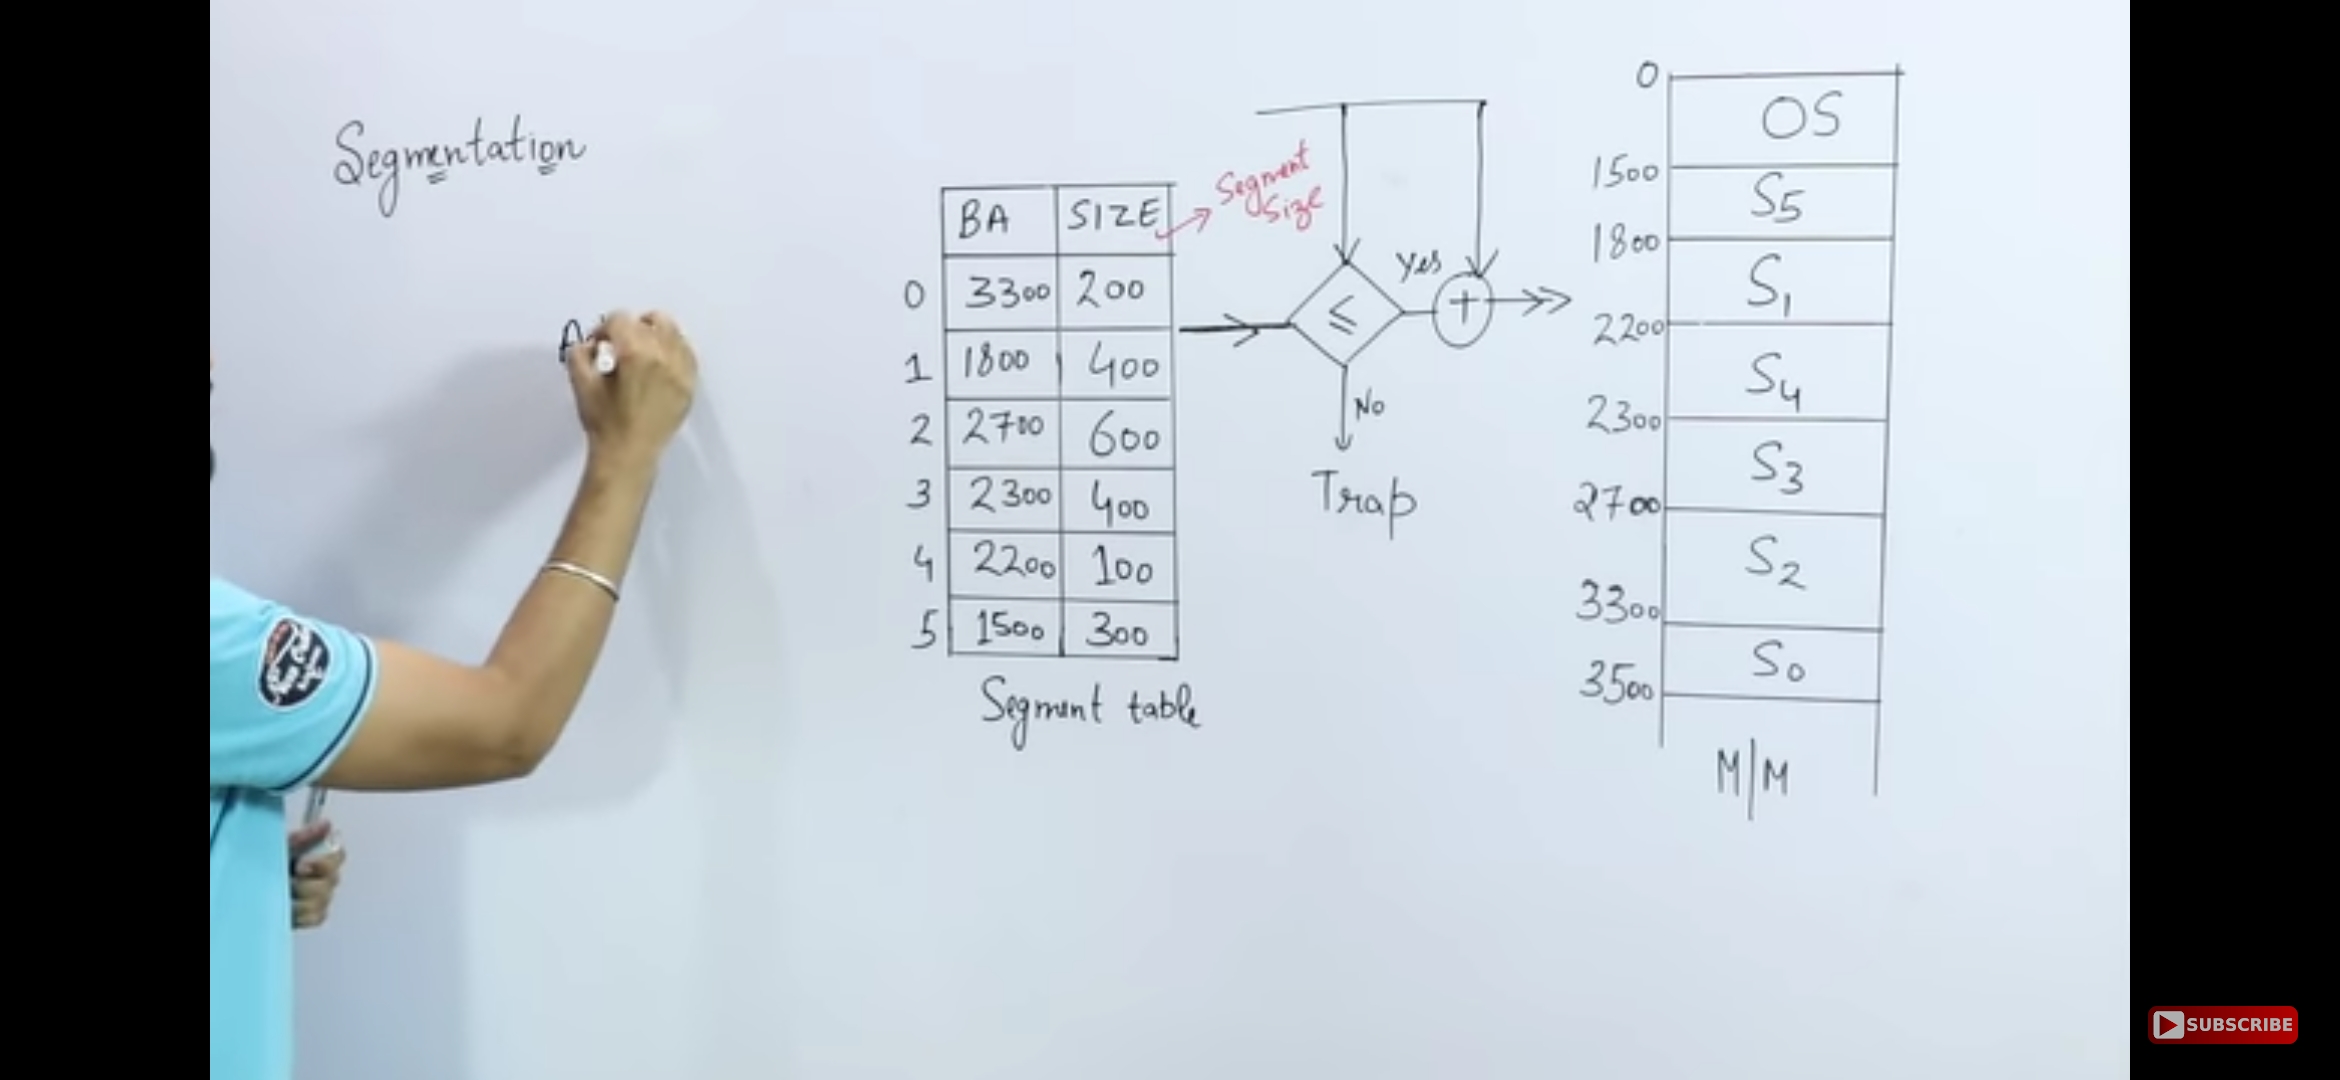 Segmentation
BA SIZE
Segment
Size
0 3300 200
1 1800 400
2 2700 600
3 2300 400
4 2200 100
5 1500 300
Segment table
≤
Yes
+
No
Trap
0
OS
1500
S5
1800
S1
2200
S4
2300
S3
2700
S2
3300
S0
3500
M/M
SUBSCRIBE